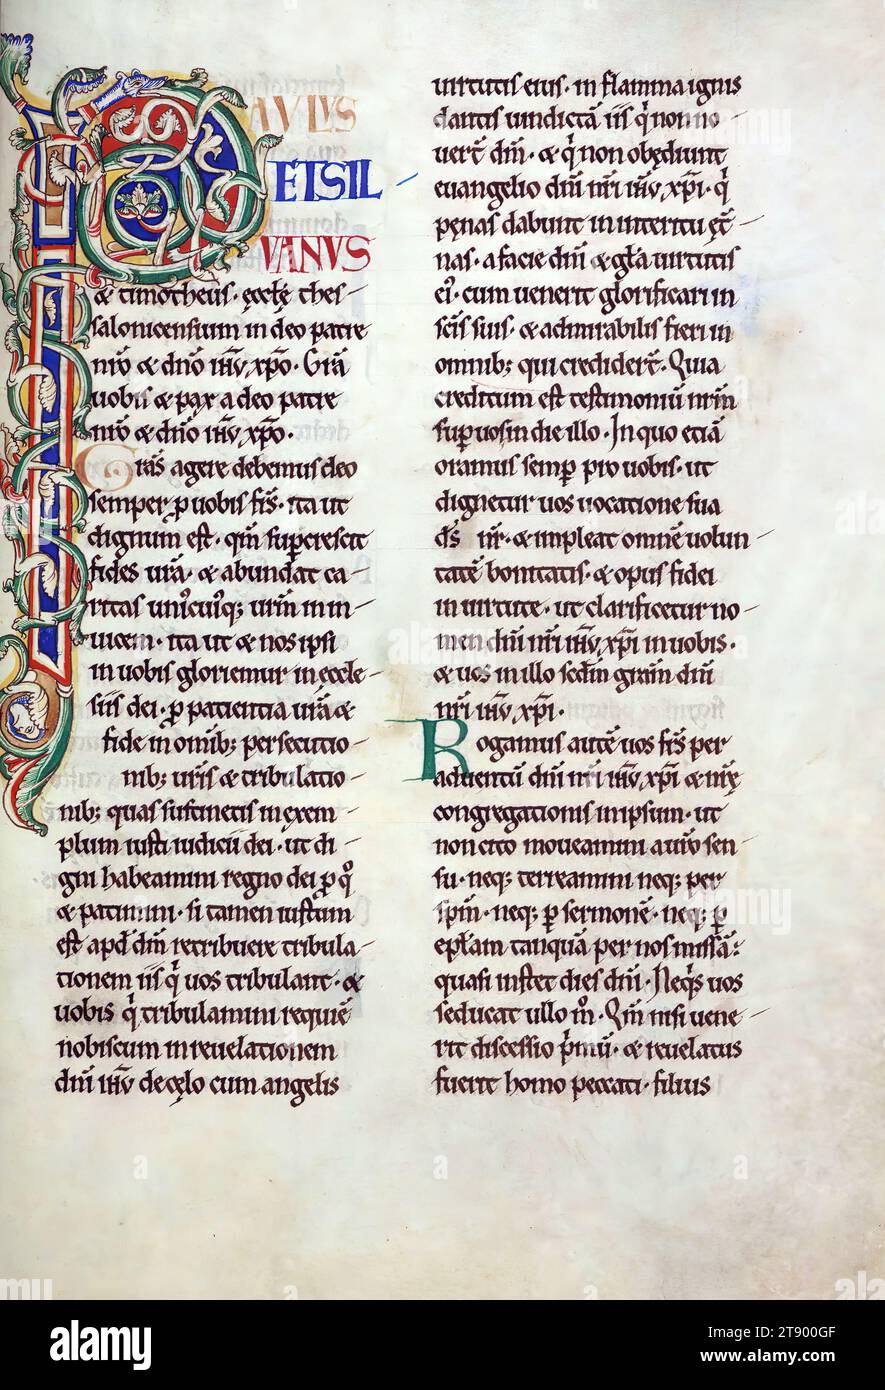 PAVLVS
ET SIL
VANVS
& timotheus · ęccłę thes
salonicensium in deo patre
nr̄o & dn̄o ih̄u xp̄o · Gr̄a
uobis & pax a deo patre
nr̄o & dn̄o ih̄u xp̄o ·
Gr̄as agere debemus deo
semper p̱ uobis fr̄s · ita ut
dignum est · qm̄ supercrescit
fides ur̄a · & abundat ca
ritas uni'cui'q; ur̄m in in
uicem · ita ut & nos ipsi
in uobis gloriemur in ęccle
siis dei · p̱ patientia ur̄a &
fide in omnib; persecutio
nib; ur̄is & tribulatio
nib; quas sustinetis in exem
plum iusti iudicii dei · ut di
gni habeamini regno dei p̱ qͦ
& patimini · si tamen iustum
est apd̄ dm̄ retribuere tribula
tionem iis qͥ uos tribulant · &
uobis qͥ tribulamini requiē
nobiscum in reuelationem
dn̄i ih̄u de cęlo cum angelis
uirtutis eius · in flamma ignis
dantis uindictā iis qͥ non no
uert̄ dm̄ · & qͥ non obędiunt
euangelio dn̄i nr̄i ih̄u xp̄i · qͥ
pęnas dabunt in interitu ęt̄
nas · a facie dn̄i & gła uirtutis
ei' · cum uenerit glorificari in
sc̄is suis · & admirabilis fieri in
omnib; qui credidert̄ · Quia
creditum est testimoniū nr̄m
sup̱ uos in die illo · In quo etiā
oramus semp̱ pro uobis · ut
dignetur uos uocatione sua
ds̄ nr̄ · & impleat omnē uolun
tatē bonitatis · & opus fidei
in uirtute · ut clarificetur no
men dn̄i nr̄i ih̄u xp̄i in uobis ·
& uos in illo sedm̄ gram̄ dn̄i
nr̄i ih̄u xp̄i ·
Rogamus autē uos fr̄s per
aduentū dn̄i nr̄i ih̄u xp̄i & nr̄ę
congregationis in ipsum · ut
non cito moueamini a ur̄o sen
su · neq; terreamini neq; per
spm̄ · neq; p̱ sermonē · neq; p̱
epłam tanquā per nos missā :
quasi instet dies dn̄i · Neqͥs uos
seducat ullo mͦ · Qm̄ nisi uene
rit discessio pͥmū · & reuelatus
fuerit homo peccati · filius
alamy
Image ID: 2T900GF
www.alamy.com